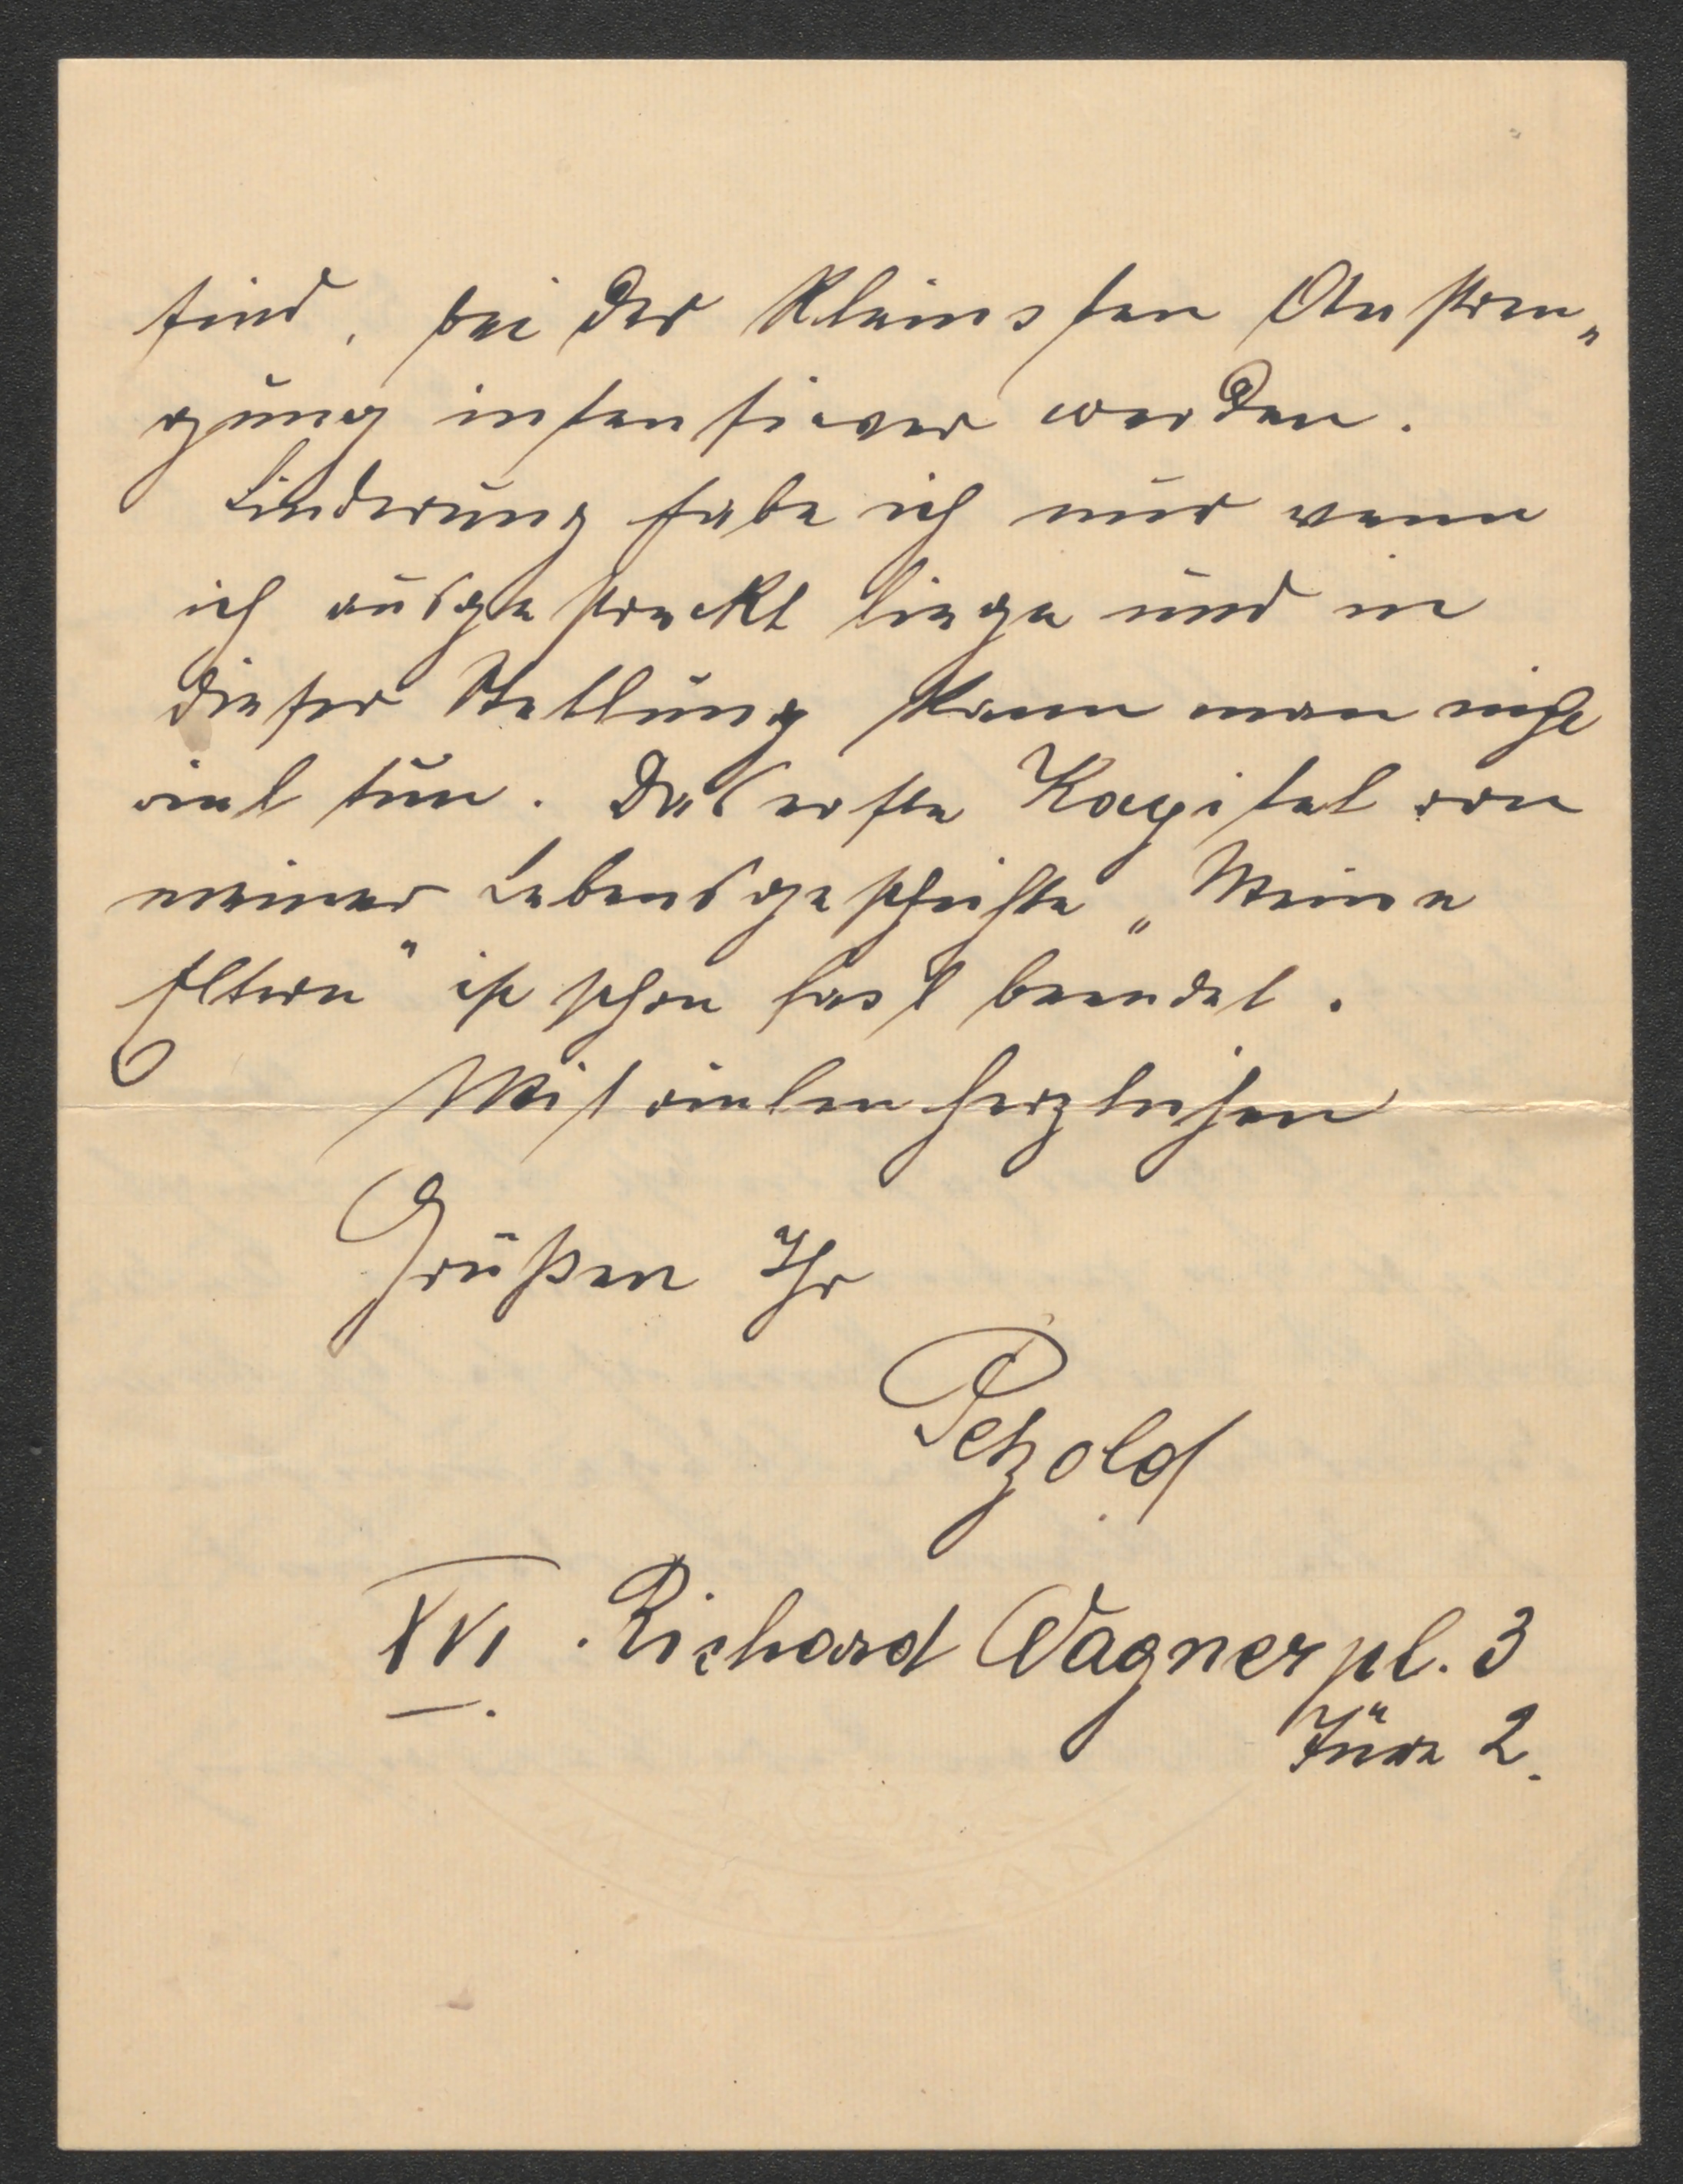 sind, bei der kleinsten Anstren„
gung intensiever werden.
Linderung habe ich nur wenn
ich ausgestreckt liege und in
dieser Stellung kann man nicht
viel tun. Das erste Kapitel von
meiner Lebensgeschichte „Meine
Eltern“ ist schon fast beendet.
Mit vielen herzlichen
Grüßen Ihr
Petzold
XVI. Richard Wagnerpl. 3
Türe 2.